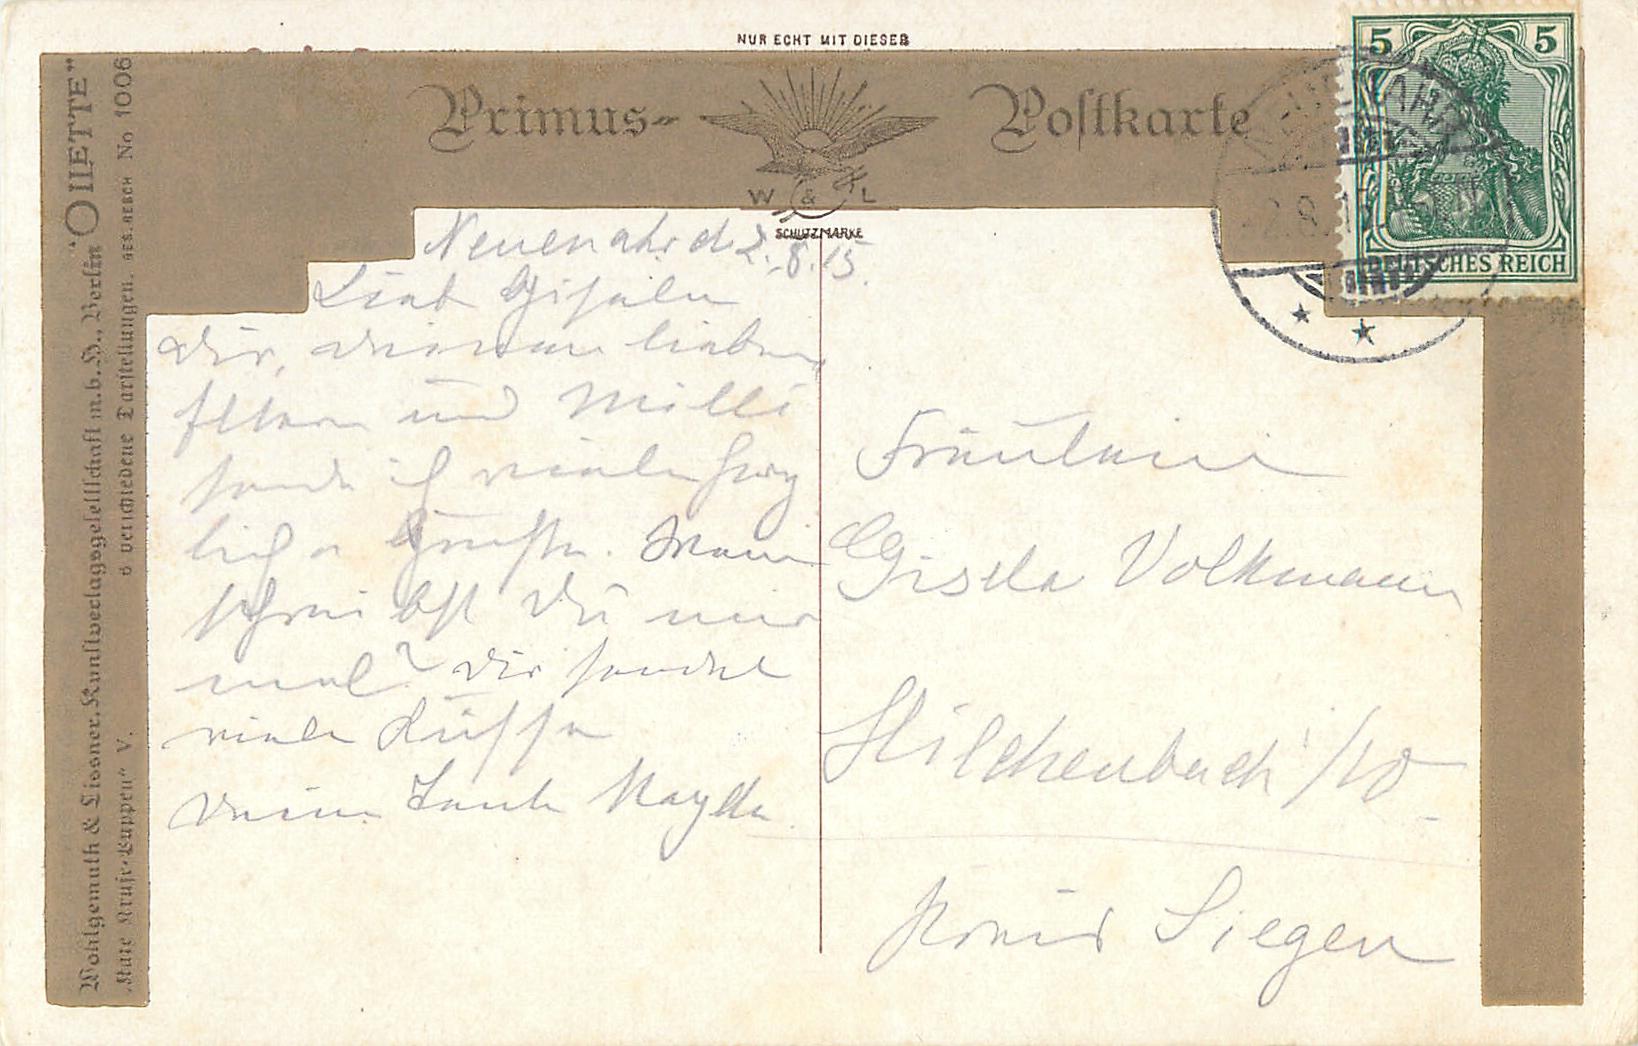 NUR ECHT MIT DIESER
Primus- Postkarte
W & L
SCHUTZMARKE
5 5
DEUTSCHES REICH
Wohlgemuth & Lissner, Kunstverlagsgesellschaft m.b.H., Berlin "OIIETTE"
"Käte Kruse-Puppen" V. 6 verschiedene Darstellungen. GES. GESCH No 1006
Neuenahr d 2. 8. 15.
Lieb Giselu
Dir, Deinen lieben
Eltern und Milli
sende ich viele herz
liche Grüße. Wann
schreibst Du mir
mal? Dir sendet
viele Küsse
Deine Tante Magda.
Fräulein
Gisela Volkmann
Hilchenbach i/W.
Kreis Siegen